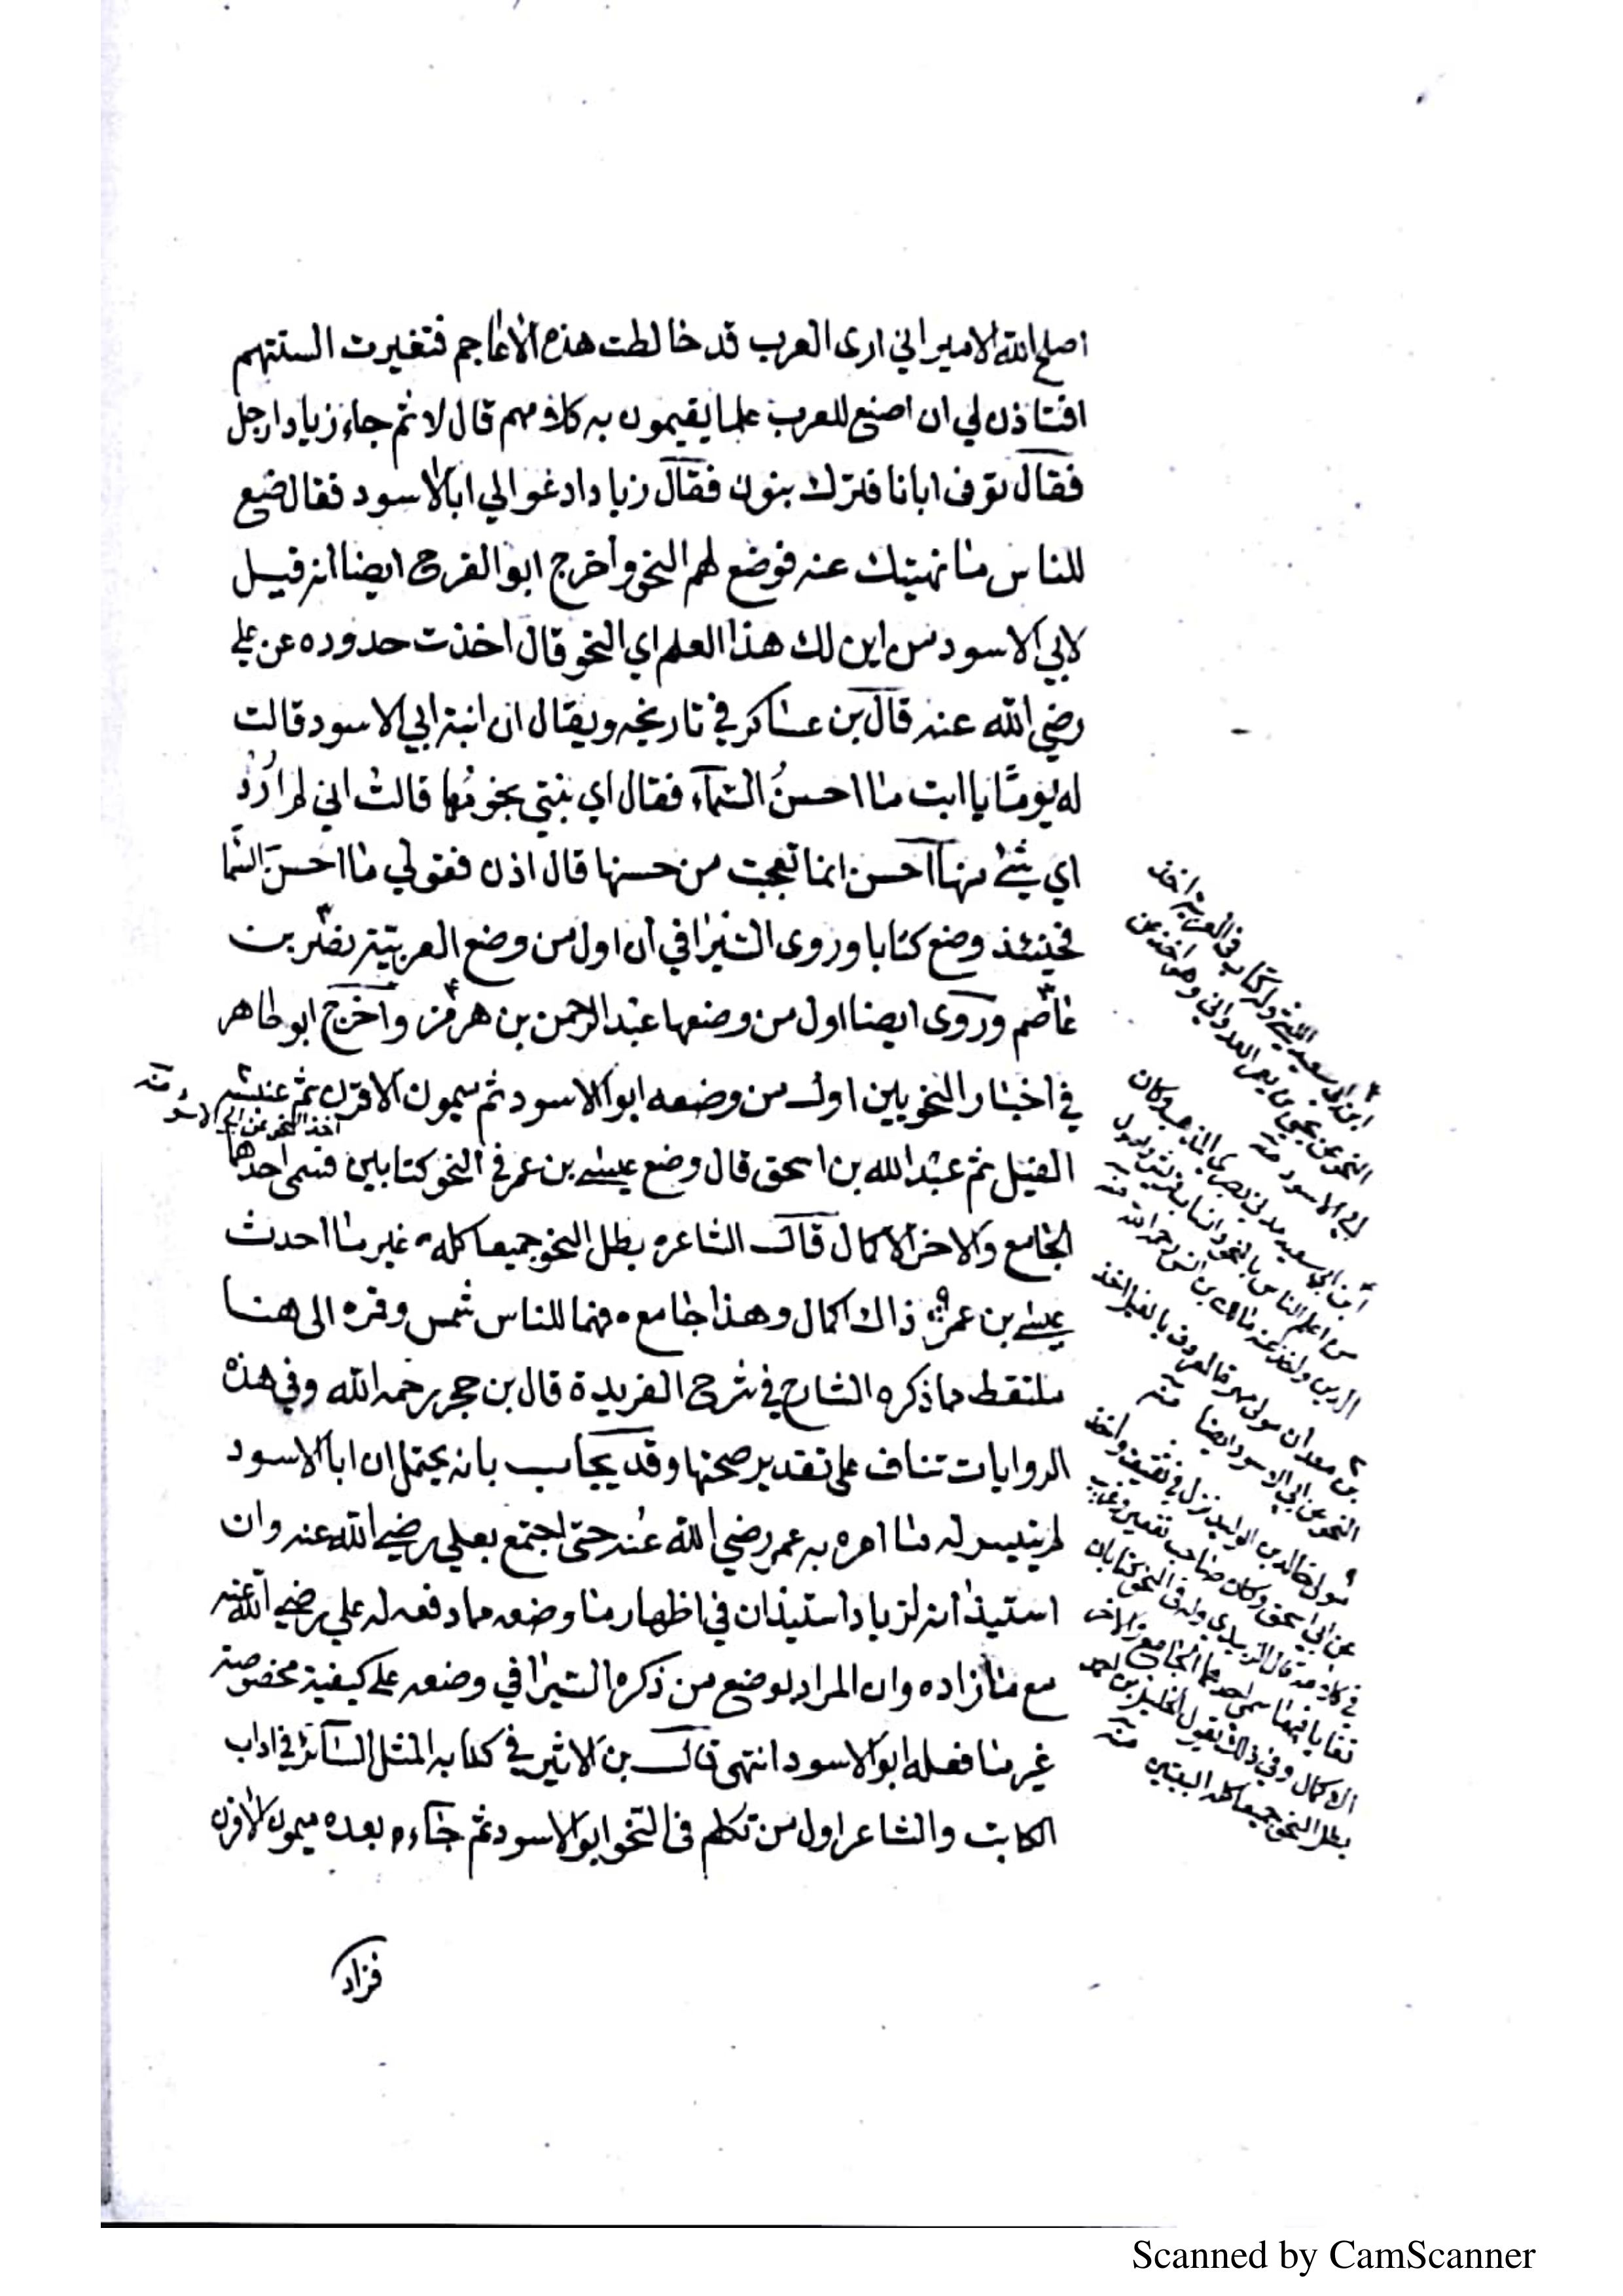 اصلح الله الامير اني ارى العرب قد خالطت هذه الاعاجم فتغيرت السنتهم
افتاذن لي ان اصنع للعرب علما يقيمون به كلامهم قال لا ثم جاء زيادا رجل
فقال توفى ابانا فترك بنون فقال زياد ادغوا لي ابا الاسود فقال ضع
للناس ما نهيتك عنه فوضع لهم النحو وأخرج ابو الفرج ايضا انه قيل
لابي الاسود من اين لك هذا العلم اي النحو قال اخذت حدوده عن علي
رضي الله عنه قال بن عساكر في تاريخه ويقال ان ابنة ابي الاسود قالت
له يوما يا ابت ما احسنُ السماء فقال اي بنتي نجومُها قالت اني لم اُرِدْ
اي شئ منها احسن انما تعجبت من حسنها قال اذن فقولي ما احسنَ السما
فحينئذ وضع كتابا وروى السيرافي أن اول من وضع العربية نصر بن
عاصم وروى ايضا اول من وضعها عبد الرحمن بن هرمز وأخرج ابو طاهر
في اخبار النحويين اول من وضعه ابو الاسود ثم ميمون الاقرن ثم عنبسة
اخذ النحو عن ابي الاسود منه
الفيل ثم عبد الله بن اسحق قال وضع عيسى بن عمر في النحو كتابين فسمى احدهما
الجامع والاخر الاكمال قال الشاعر ه بطل النحو جميعا كله ، غير ما احدث
عيسى بن عمر ، ذاك اكمال وهذا جامع ه فهما للناس شمس وقمره الى هنا
ملتقط مما ذكره الشارح في شرح الفريدة قال بن حجر رحمه الله وفي هذه
الروايات تناف على تقدير صحتها وقد يجاب بانه يحتمل ان ابا الاسود
لم يتيسر له ما امره به عمر رضي الله عنه حتى اجتمع بعلي رضي الله عنه وان
استيذانه لزياد استيذان في اظهار ما وضعه مما دفعه له علي رضي الله عنه
مع ما زاده وان المراد بوضع من ذكره السيرافي وضعه على كيفية مخصوصة
غير ما فعله ابو الاسود انتهى قال بن الاثير في كتابه المثل السائر في اداب
الكاتب والشاعر اول من تكلم فى النحو ابو الاسود ثم جاءه بعده ميمون الاقرن
فزاد
ابن ابي سعيد الليثي وله كتاب في العربية اخذ
النحو عن يحيى بن يعمر العدواني وهو اخذ عن
ابي الاسود منه
من اعلم الناس بالنحو وانساب قريش
بن معدان مولى مهرة المعروف بالفيل اخذ
النحو عن ابي الاسود ايضا منه
مولى خالد بن الوليد نزل في ثقيف واخذ
عن ابي اسحق وكان صاحب تقعير
في كلامه قال الزبيدي وله في النحو كتابان
سمى احدهما الجامع والاخر
الاكمال وفي ذلك يقول الخليل بن احمد
بطل النحو جميعا كله البيتين منه
Scanned by CamScanner